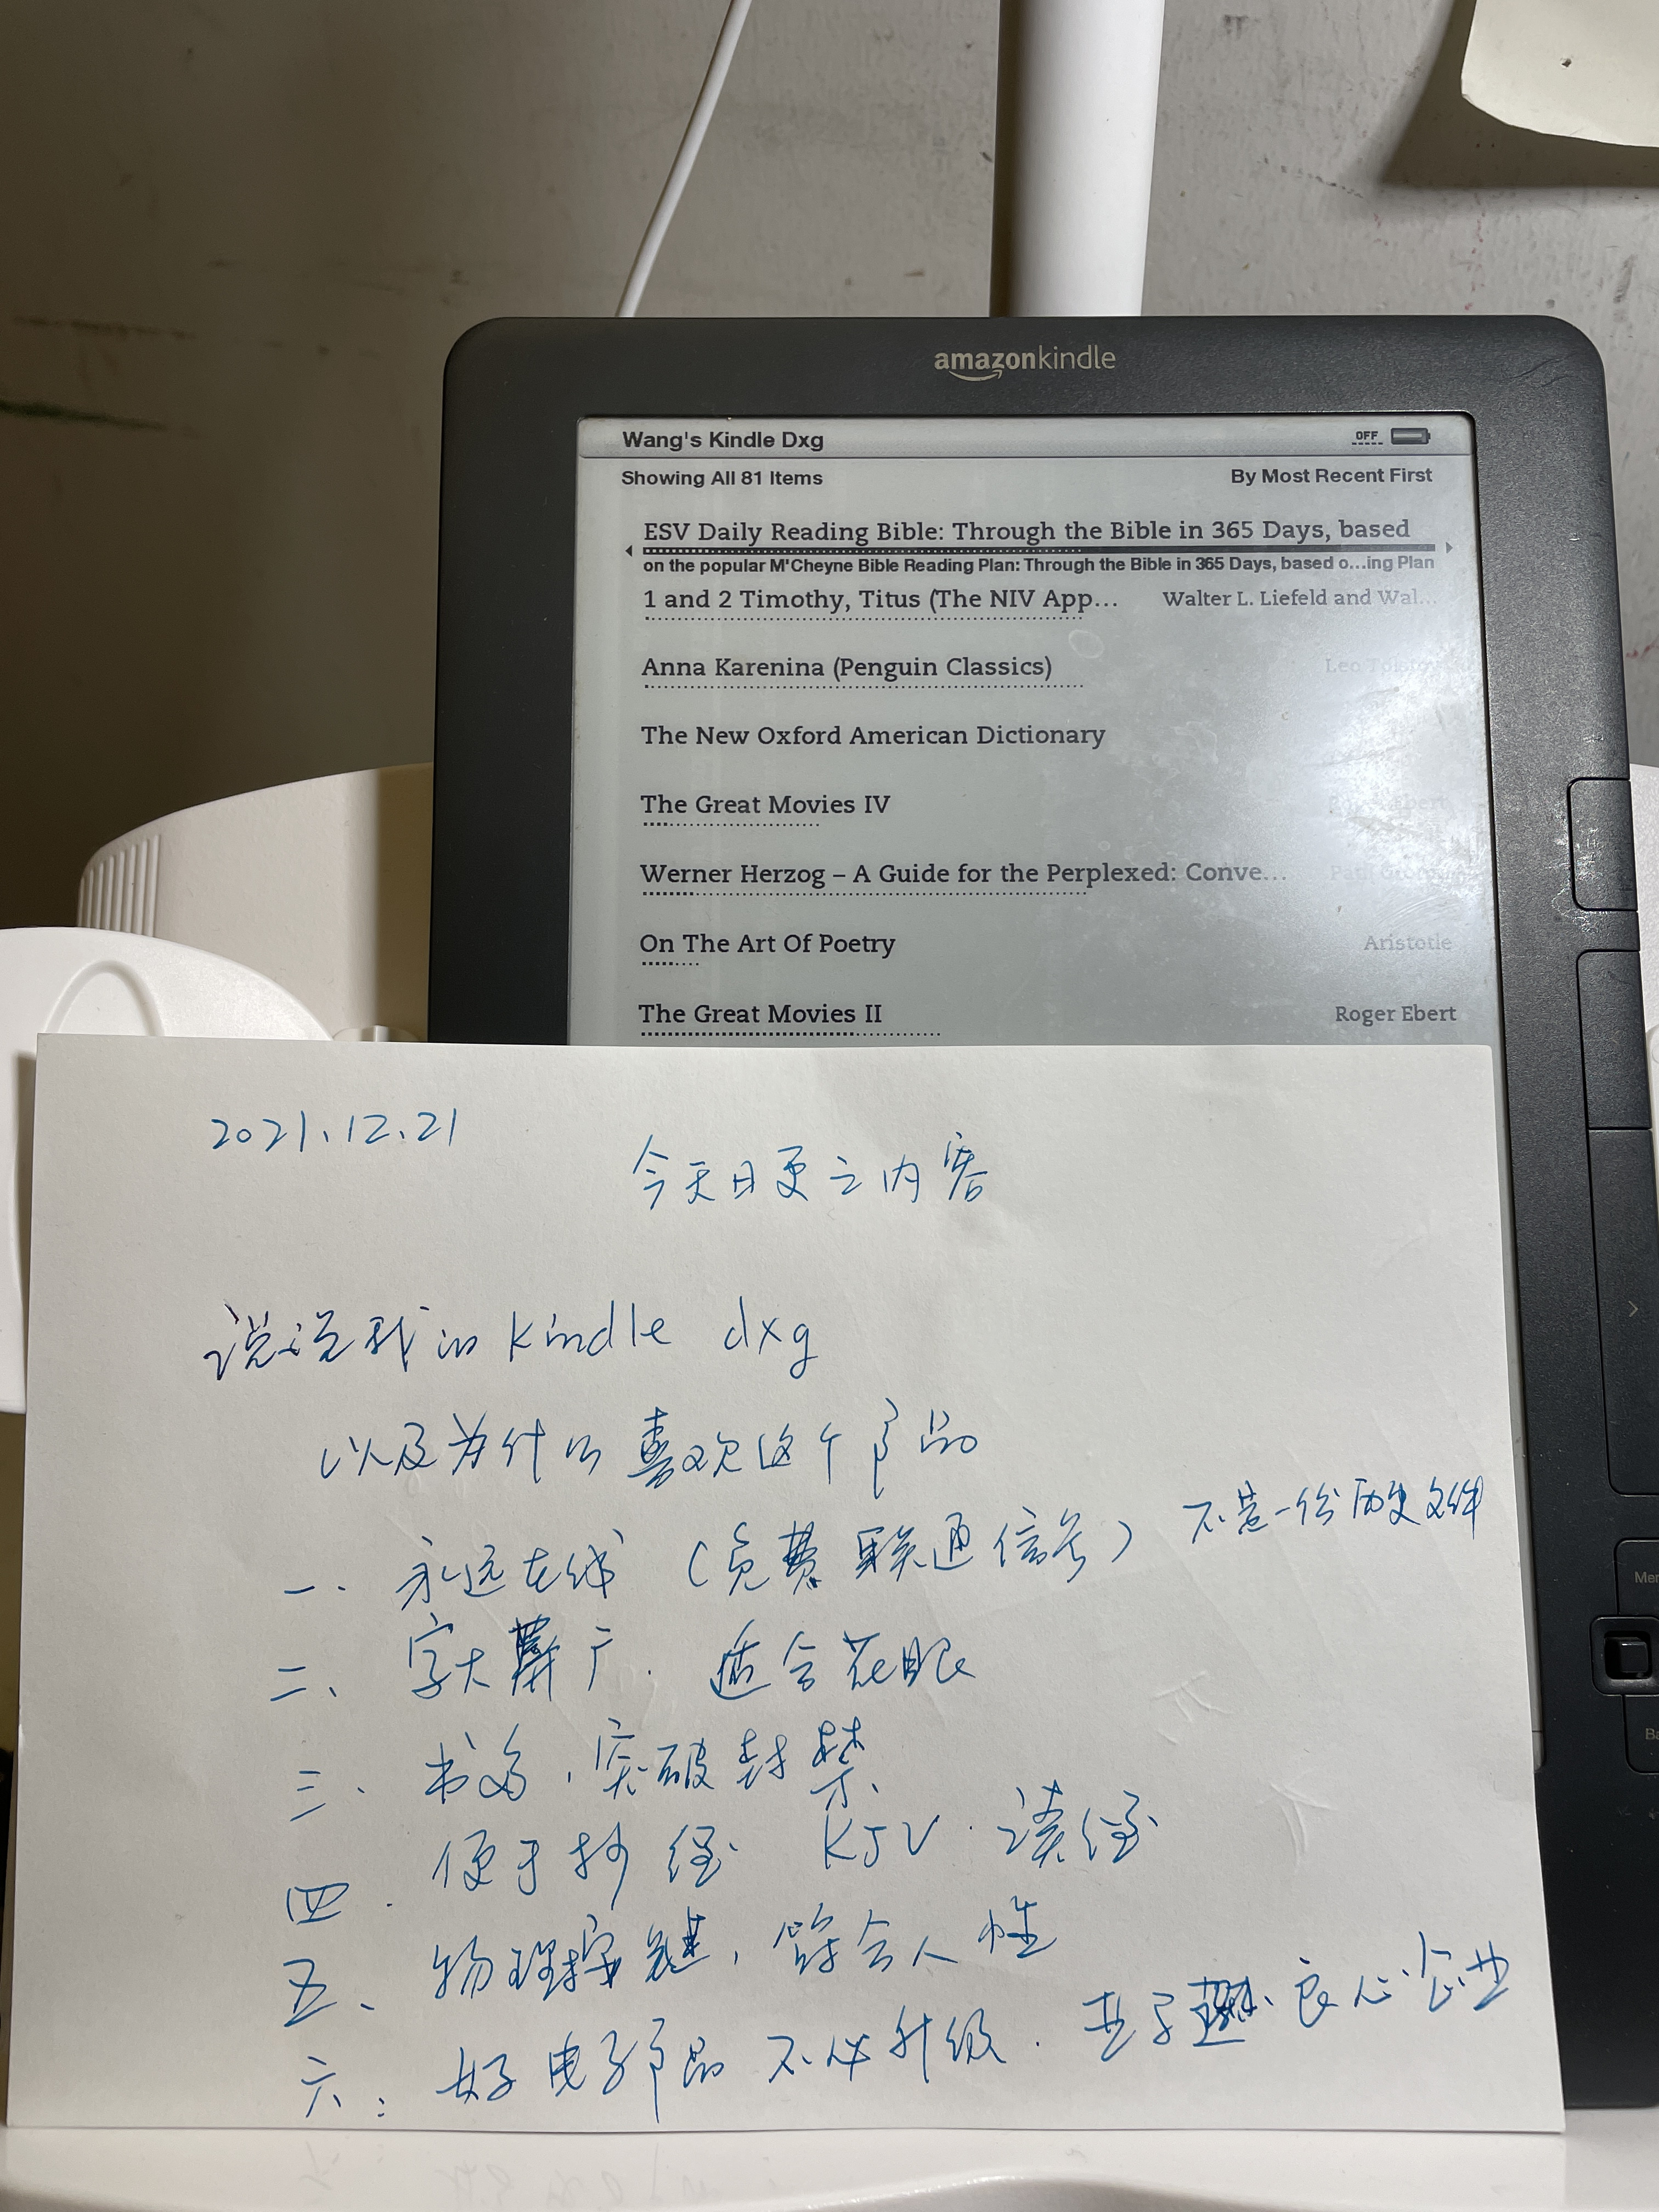 amazonkindle
Wang's Kindle Dxg OFF
Showing All 81 Items By Most Recent First
ESV Daily Reading Bible: Through the Bible in 365 Days, based
on the popular M'Cheyne Bible Reading Plan: Through the Bible in 365 Days, based o...ing Plan
1 and 2 Timothy, Titus (The NIV App... Walter L. Liefeld and Wal...
Anna Karenina (Penguin Classics) Leo Tolstoy
The New Oxford American Dictionary
The Great Movies IV Roger Ebert
Werner Herzog – A Guide for the Perplexed: Conve... Paul Cronin
On The Art Of Poetry Aristotle
The Great Movies II Roger Ebert
2021.12.21
今天日更之内容
说说我的 Kindle dxg
以及为什么喜欢这个产品
一. 永远在线 (免费联通信号) 不是一份历史文件
二、字大幕广. 适合花眼
三、书多,突破封禁.
四. 便于抄经 KJV. 读经
五、物理按键,符合人性
六: 好电子产品不必升级. 良心企业
Men
Ba